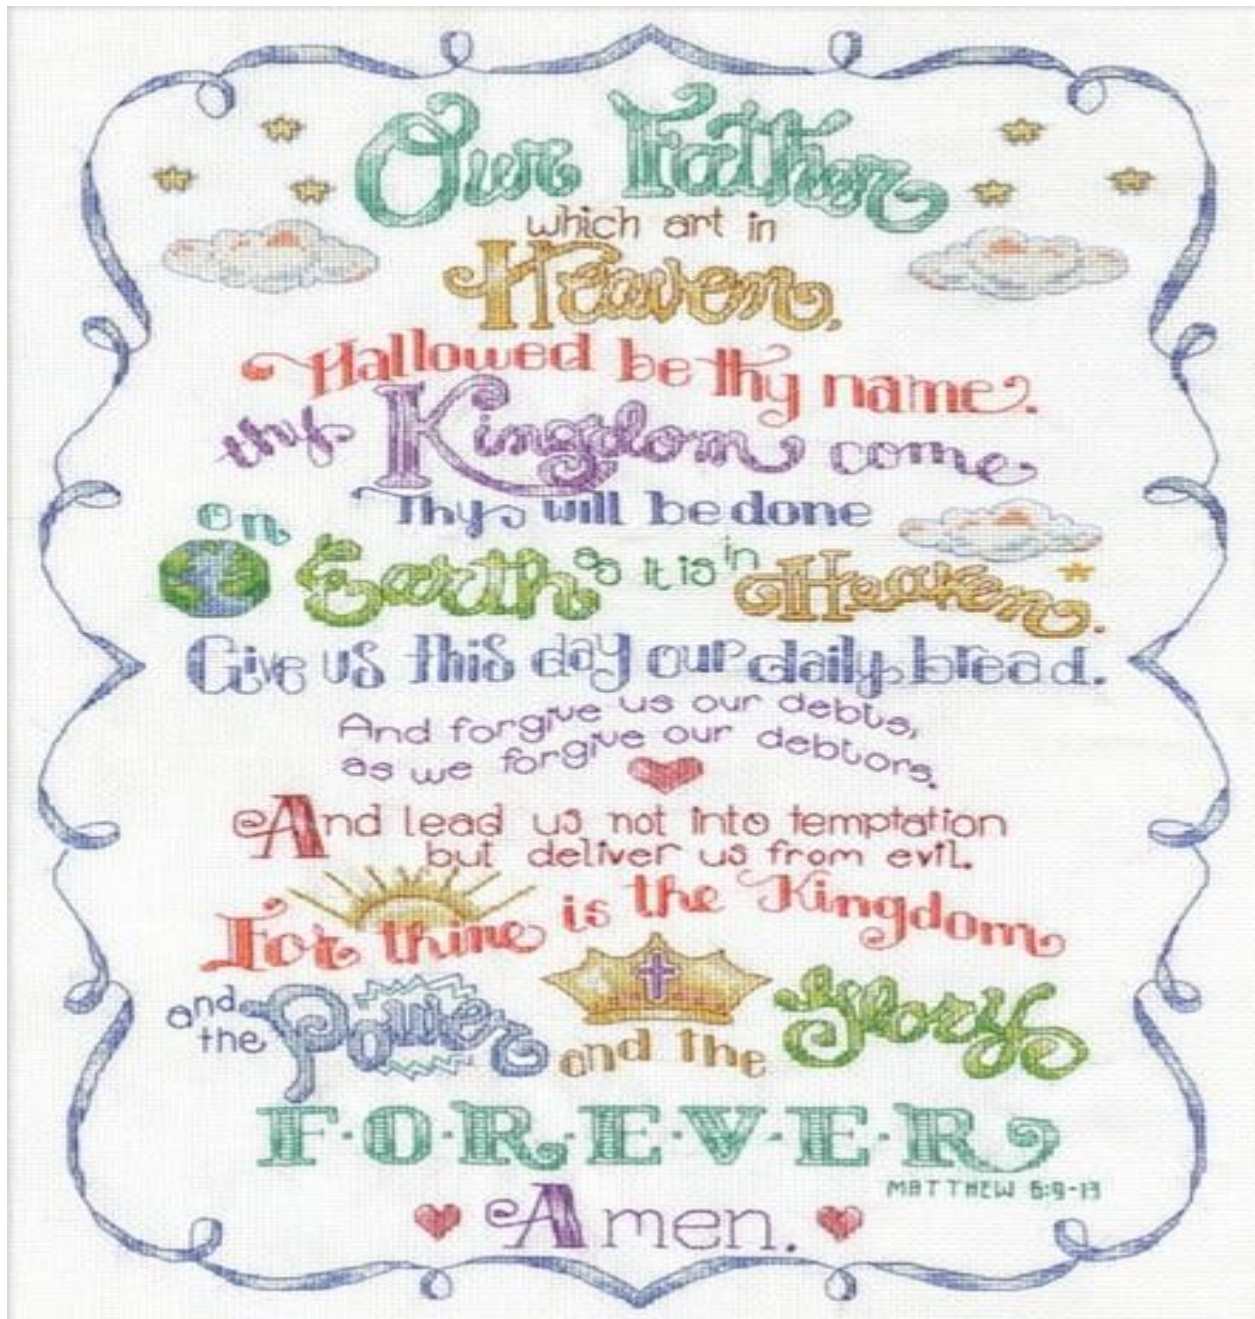 Our Father
which art in
Heaven.
Hallowed be thy name.
thy Kingdom come
Thy will be done
on
Earth as it is in Heaven.
Give us this day our daily bread.
And forgive us our debts,
as we forgive our debtors.
And lead us not into temptation
but deliver us from evil.
For thine is the Kingdom
and the Power and the Glory
F·O·R·E·V·E·R
MATTHEW 6:9-13
Amen.